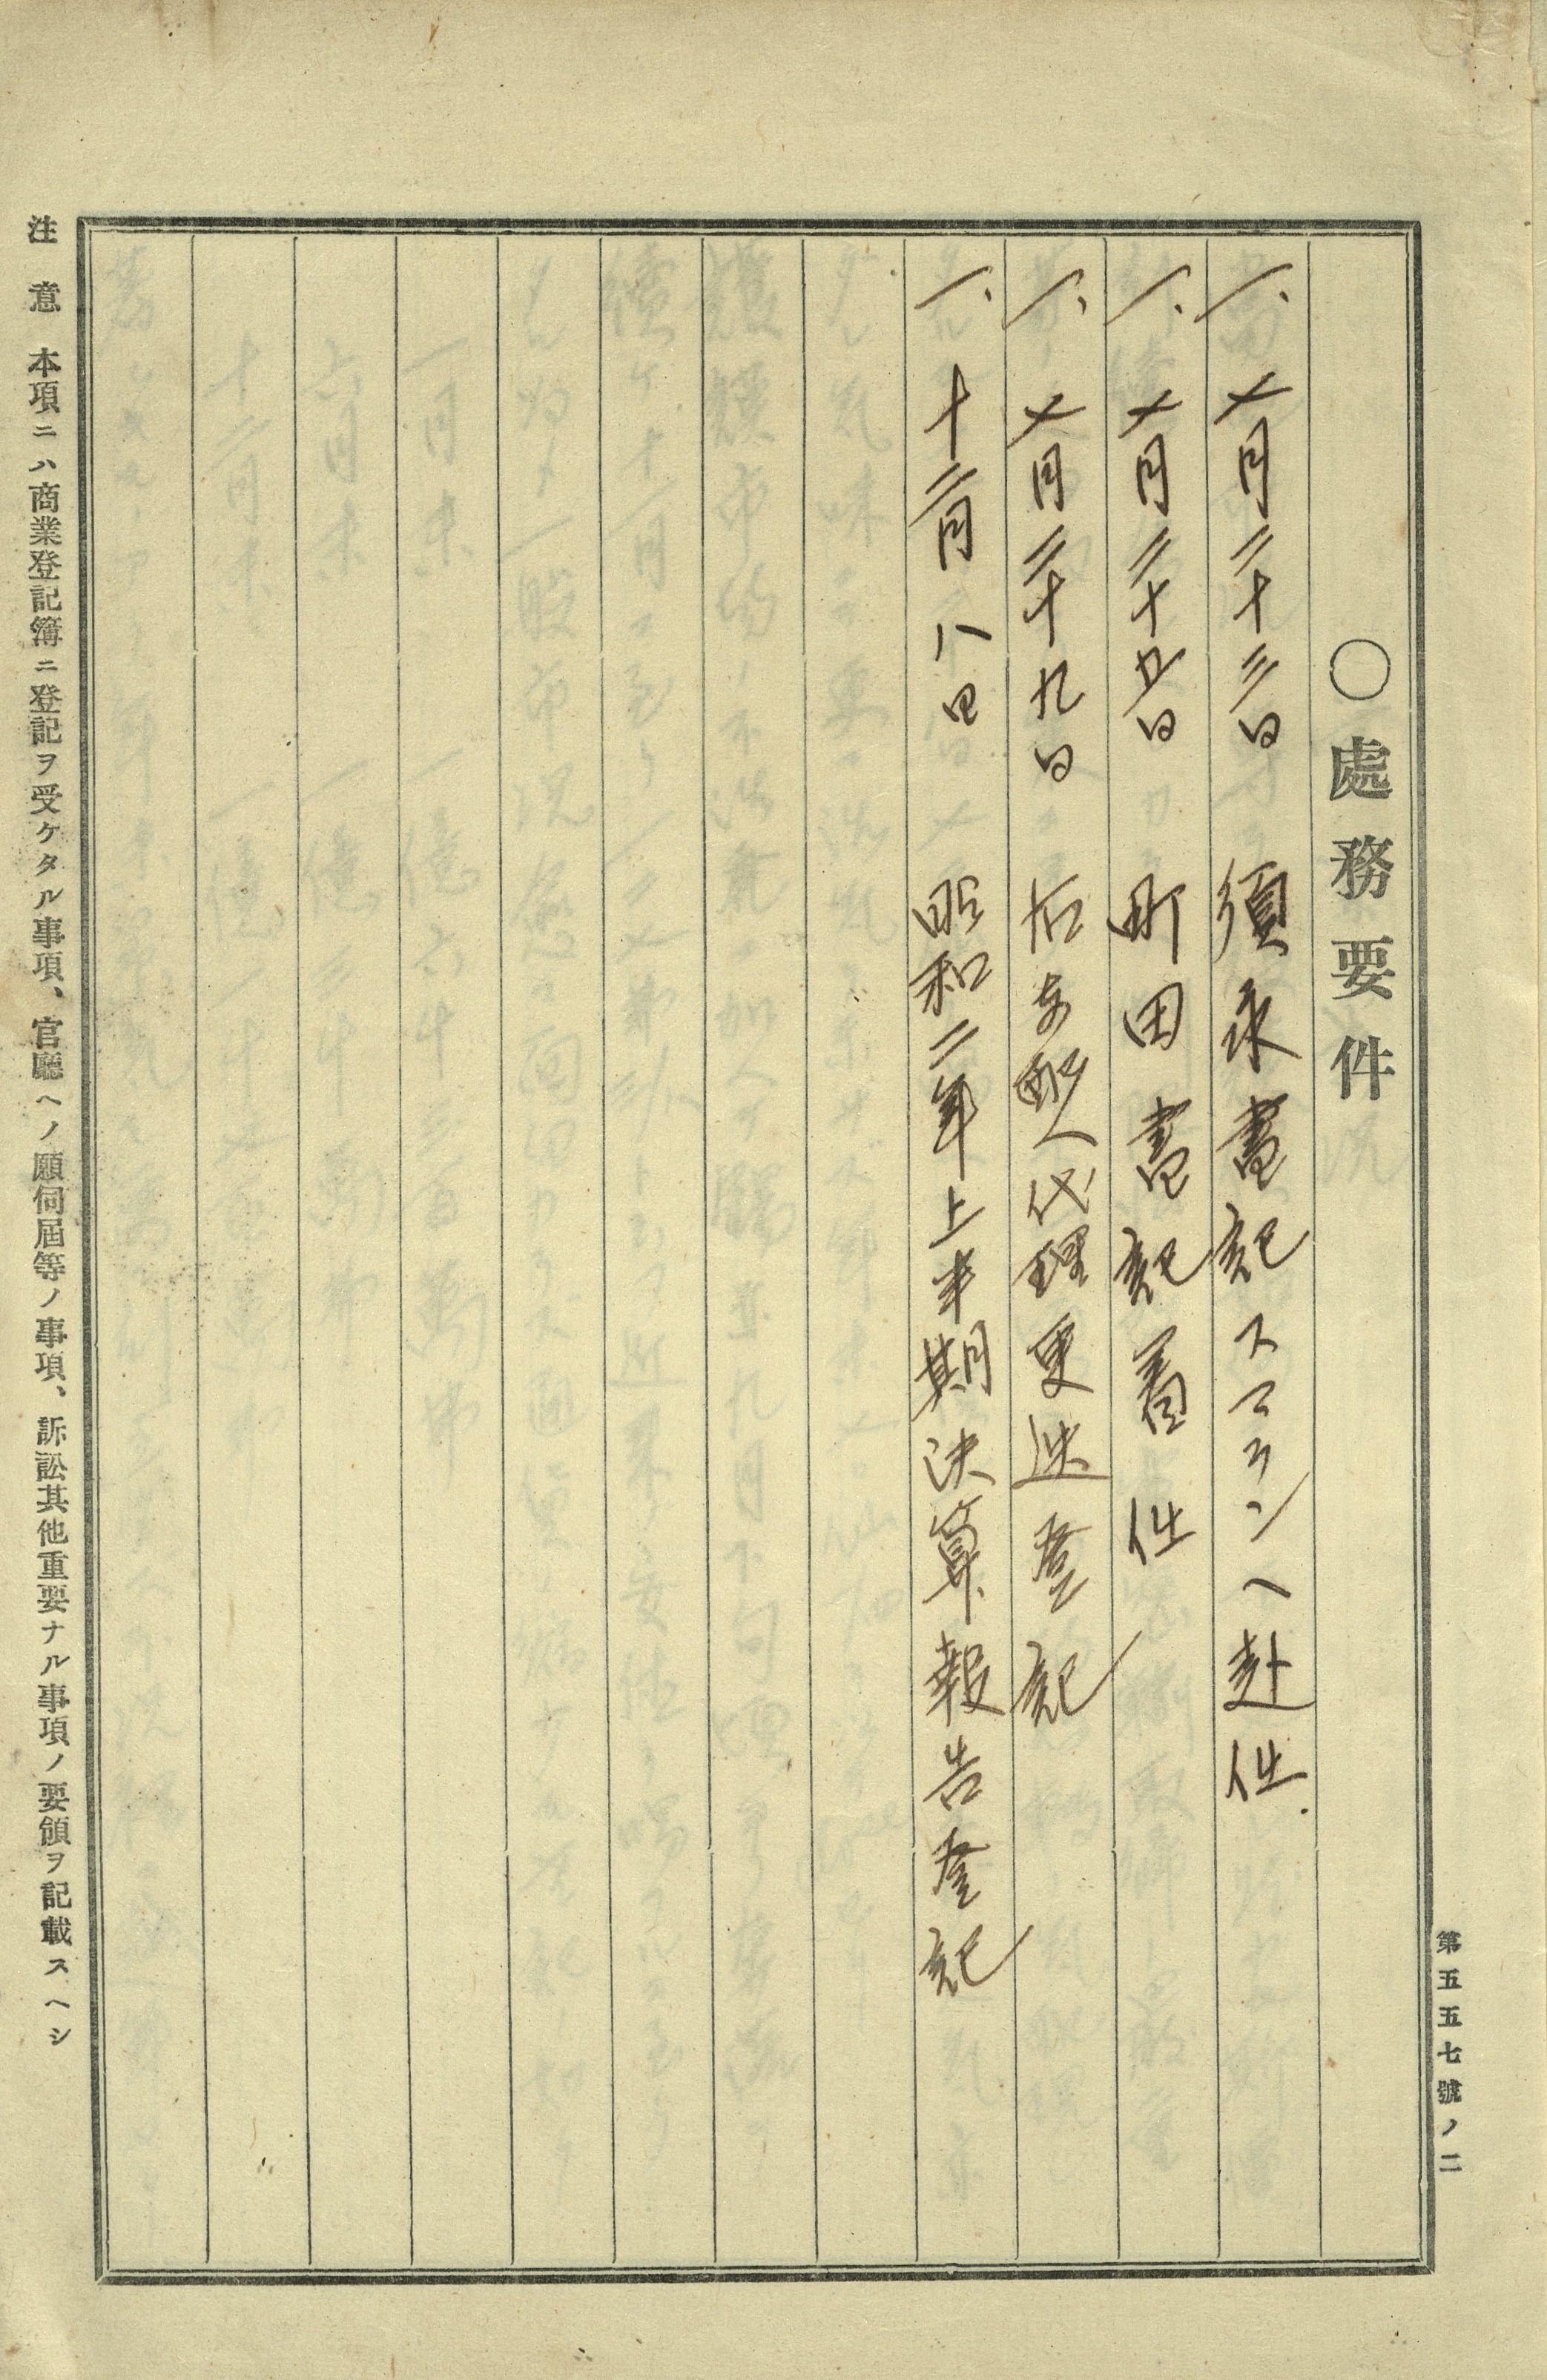 第五五七號ノ二
〇處務要件
一、七月二十三日 須永書記スマランヘ赴任.
一、七月二十五日 町田書記着任
一、七月二十九日 右支配人代理更迭登記
一、十二月八日 昭和二年上半期決算報告登記
注意 本項ニハ商業登記簿ニ登記ヲ受ケタル事項、官廳ヘノ願伺屆等ノ事項、訴訟其他重要ナル事項ノ要領ヲ記載スヘシ